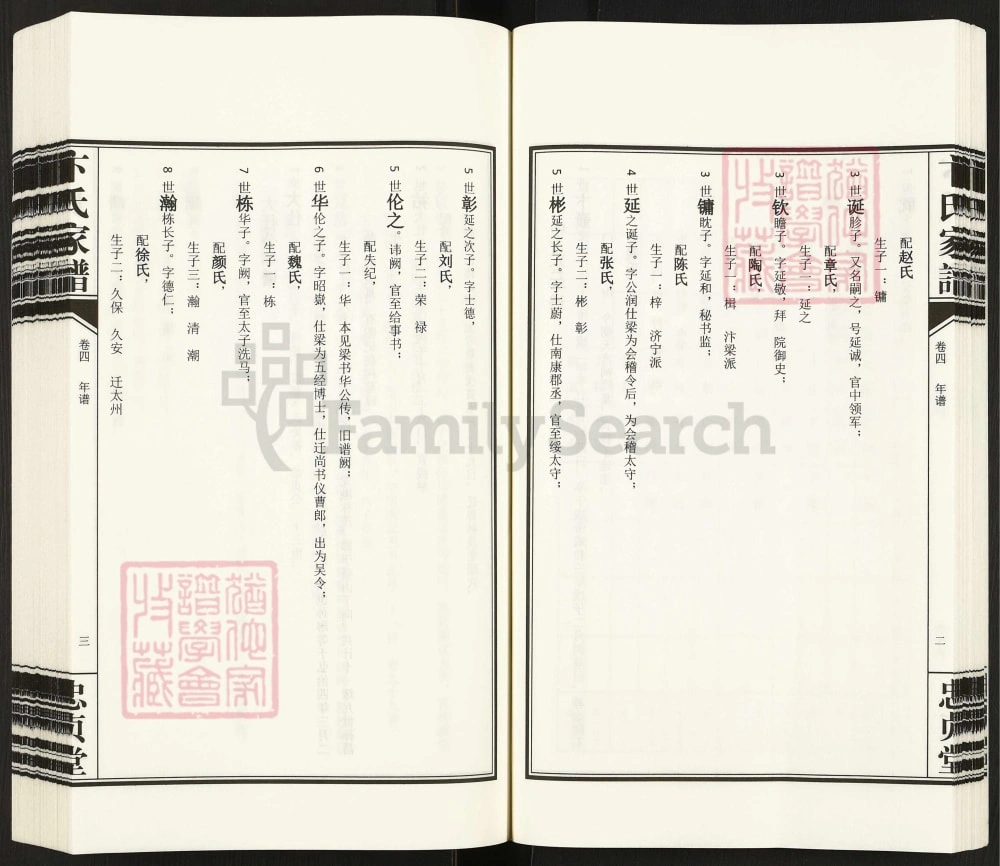 卞氏家譜
卷四 年谱
二
忠贞堂
配赵氏
生子一：镛
3世诞眕子。又名嗣之，号延诚，官中领军；
配章氏，
生子一：延之
3世钦瞻子。字延敬，拜 院御史；
配陶氏，
生子一：楫 汴梁派
3世镛眈子。字延和，秘书监；
配陈氏
生子一：梓 济宁派
4世延之诞子。字公润仕梁为会稽令后，为会稽太守；
配张氏，
生子二：彬 彰
5世彬延之长子。字士蔚，仕南康郡丞，官至绥太守；
5世彰延之次子。字士德，
配刘氏，
生子二：荣 禄
5世伦之。讳阙，官至给事书；
配失纪，
生子一：华 本见梁书华公传，旧谱阙；
6世华伦之子。字昭嶽，仕梁为五经博士，仕迁尚书仪曹郎，出为吴令；
配魏氏，
生子一：栋
7世栋华子。字阙，官至太子洗马；
配颜氏，
生子三：瀚 清 潮
8世瀚栋长子。字德仁；
配徐氏，
生子二：久保 久安 迁太州
卞氏家譜
卷四 年谱
三
忠贞堂
FamilySearch